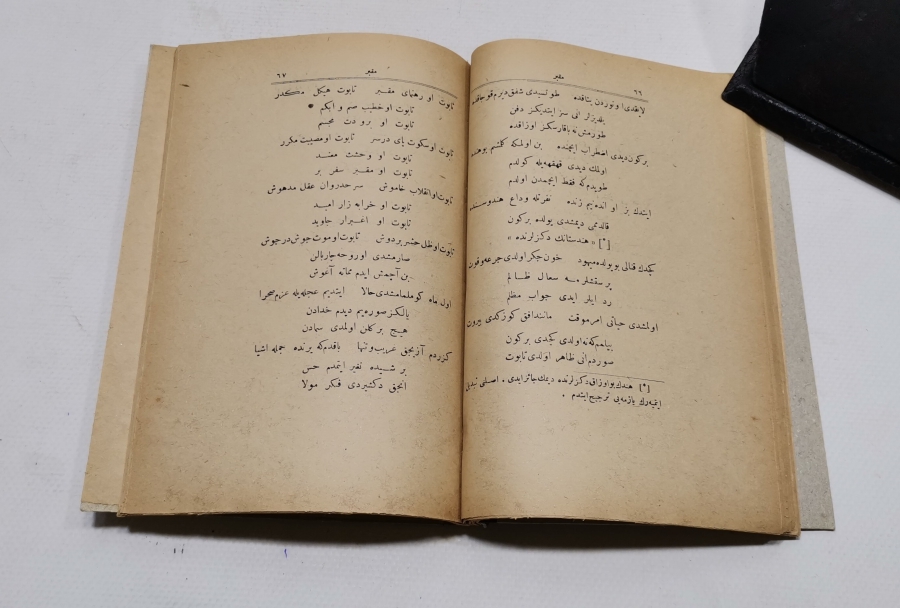 ٦٦
مقبر
لایقدی او نوردن بتاقده طوتسیدی شفق دیرم قوجاقده
یلدیزلر انی سز ایتدیکز دفن
طورمش نه باقارسکز اوزاقده
برکون دیدی اضطراب ایچنده بن اولمکه کلمشم بو هندە
اولمك دیدی قهقهه‌یله کولدم
طویدم که فقط ایچمدن اولدم
ایتدك بز او اندە‌یم زنده نفرتله وداع هند و سنده
قالدمی دیمشدی یولده برکون
[*] « هندستانك دکزلرنده »
کچدك قنالی بو یولده مبهود خون جکر اولدی جرعه وقوت
پر سقشلر مه سعال ظالم
رد ایلر ایدی جواب مظلم
اولمشدی حیاتی امر موقت مانند افق کوزکدی بیروت
بیلمم که نه اولدی کچدی برکون
صوردم انی ظاهر اولدی تابوت
[*] هندك بو اوزاق دکزلرنده دیمك جائز ایدی . اصلنی تبدیل
ایتمیه‌رك یازمه‌یی ترجیح ایتدم .
مقبر
٦٧
تابوت او رهنمای مقبر تابوت هیکل مکدر
تابوت او خطیب صم و ابکم
تابوت او برودت مجسم
تابوت او سکوت پای درسر تابوت او مصیبت مکرر
تابوت او وحشت ممتد
تابوت او مقبر سفر بر
تابوت او انقلاب خاموش سر حدروان عقل مدهوش
تابوت او خرابه زار امید
تابوت او اغبرار جاوید
تابوت او ظل حشر بردوش تابوت او موت جوش در جوش
صارمشدی او روحه جار بالن
بن آچمش ایدم ممانه آغوش
اول ماه کوملمامشدی حالا ایتدیم عجله‌یله عزم صحرا
یالکز صوره‌یم دیدم خدادن
هیچ بر کلن اولمدی سمادن
کزردم آنزبجق غریب و تنها باقدم که یرنده جمله اشیا
بر شیده تغیر ایتمدم حس
انجق دکشیردی فکر مولا